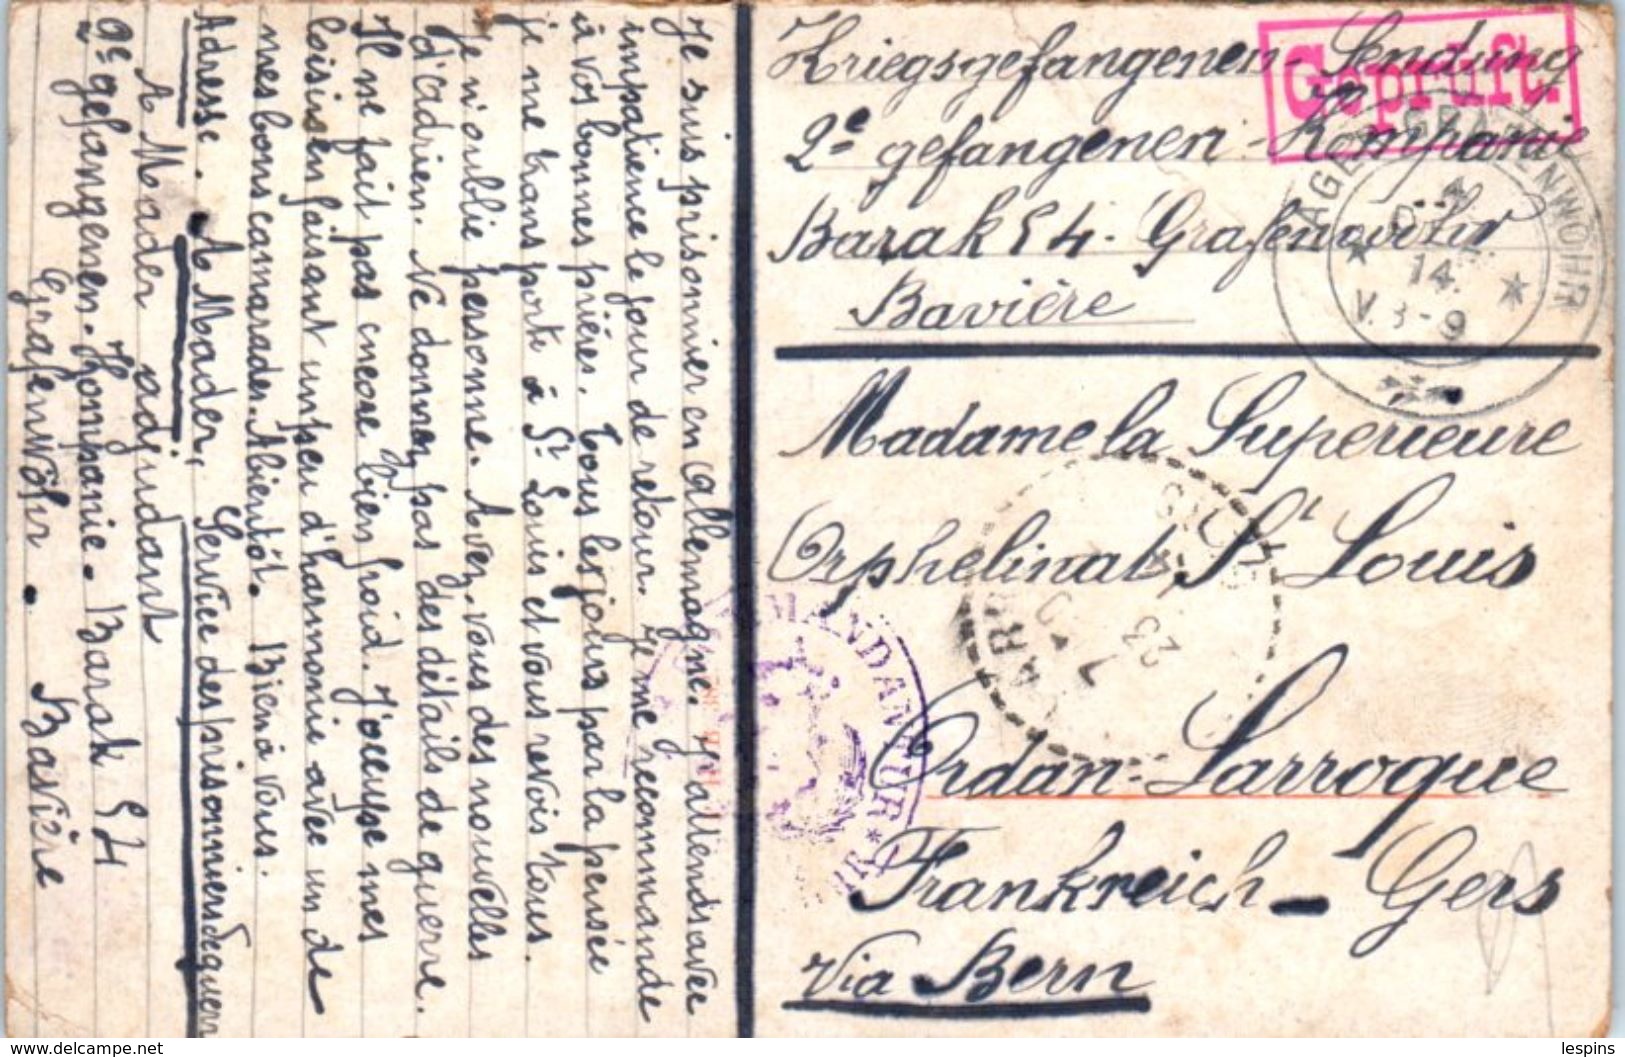 Kriegsgefangenen-Sendung
2e gefangenen-Kompanie
Barak 54. Grafenwöhr
Bavière
Geprüft.
LAGER GRAFENWÖHR
4
DEZ.
14.
V. 8-9
Madame la Superieure
Orphelinat St Louis
Ordan-Larroque
Frankreich - Gers
via Bern
KOMMANDANTUR
23
Je suis prisonnier en Allemagne. J'attends avec
impatience le jour de retour. Je me recommande
à vos bonnes prières. Tous les jours par la pensée
je me transporte à St Louis et vous revois tous.
Je n'oublie personne. Avez-vous des nouvelles
d'Adrien. Ne donnez pas des détails de guerre.
Il ne fait pas encore bien froid. J'occupe mes
loisirs en faisant un peu d'harmonie avec un de
mes bons camarades. A bientôt. Bien à vous.
Adresse. A Mader, Service des prisonniers de guerre
A Mader adjudant
2e gefangenen-Kompanie. Barak 54
Grafenwöhr. Bavière
lespins